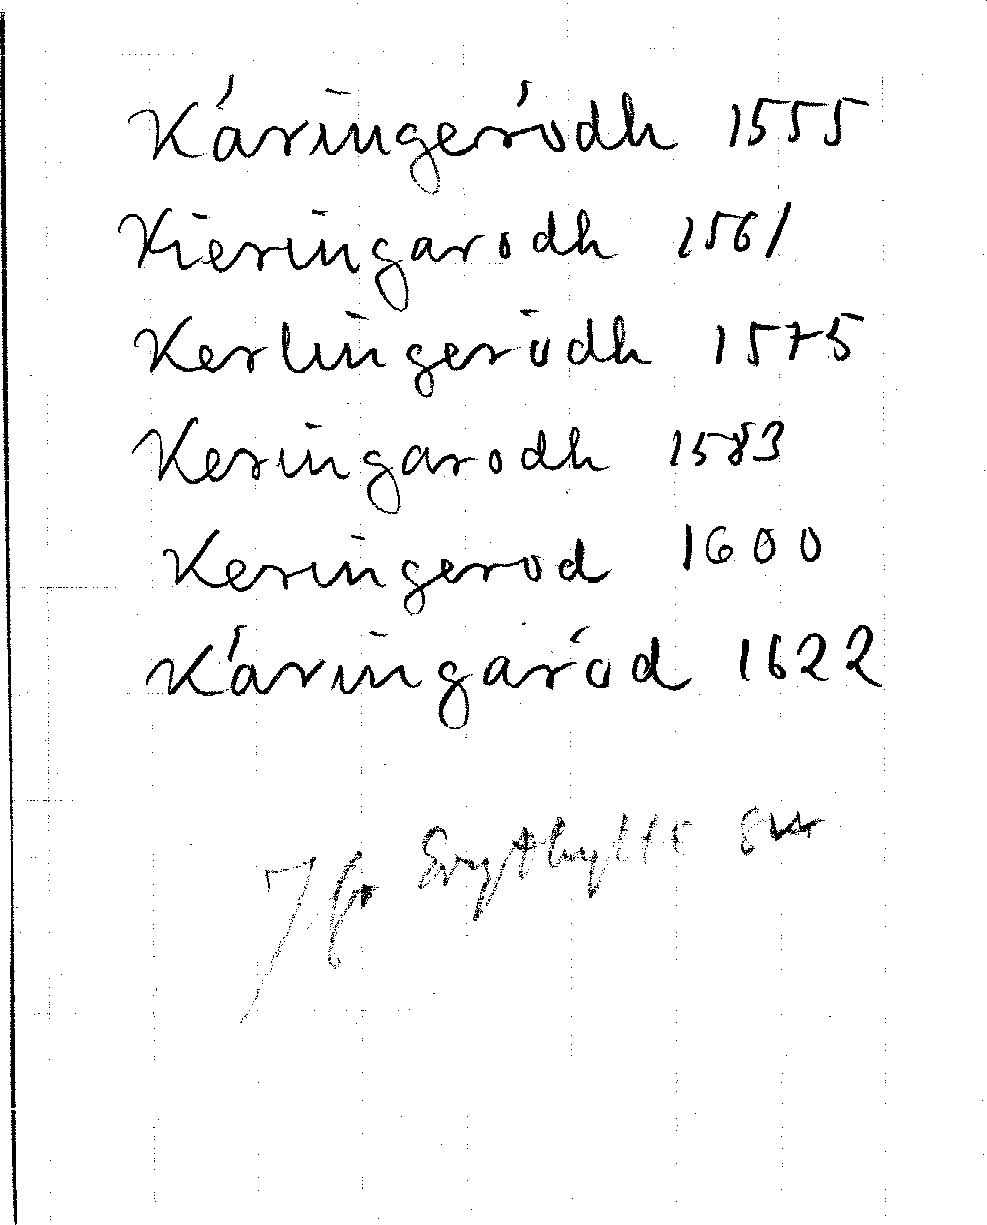 Käringerödh 1555
Kieringarodh 1561
Kerlingerödh 1575
Keringarodh 1583
Keringerod 1600
Käringaröd 1622
Jfr